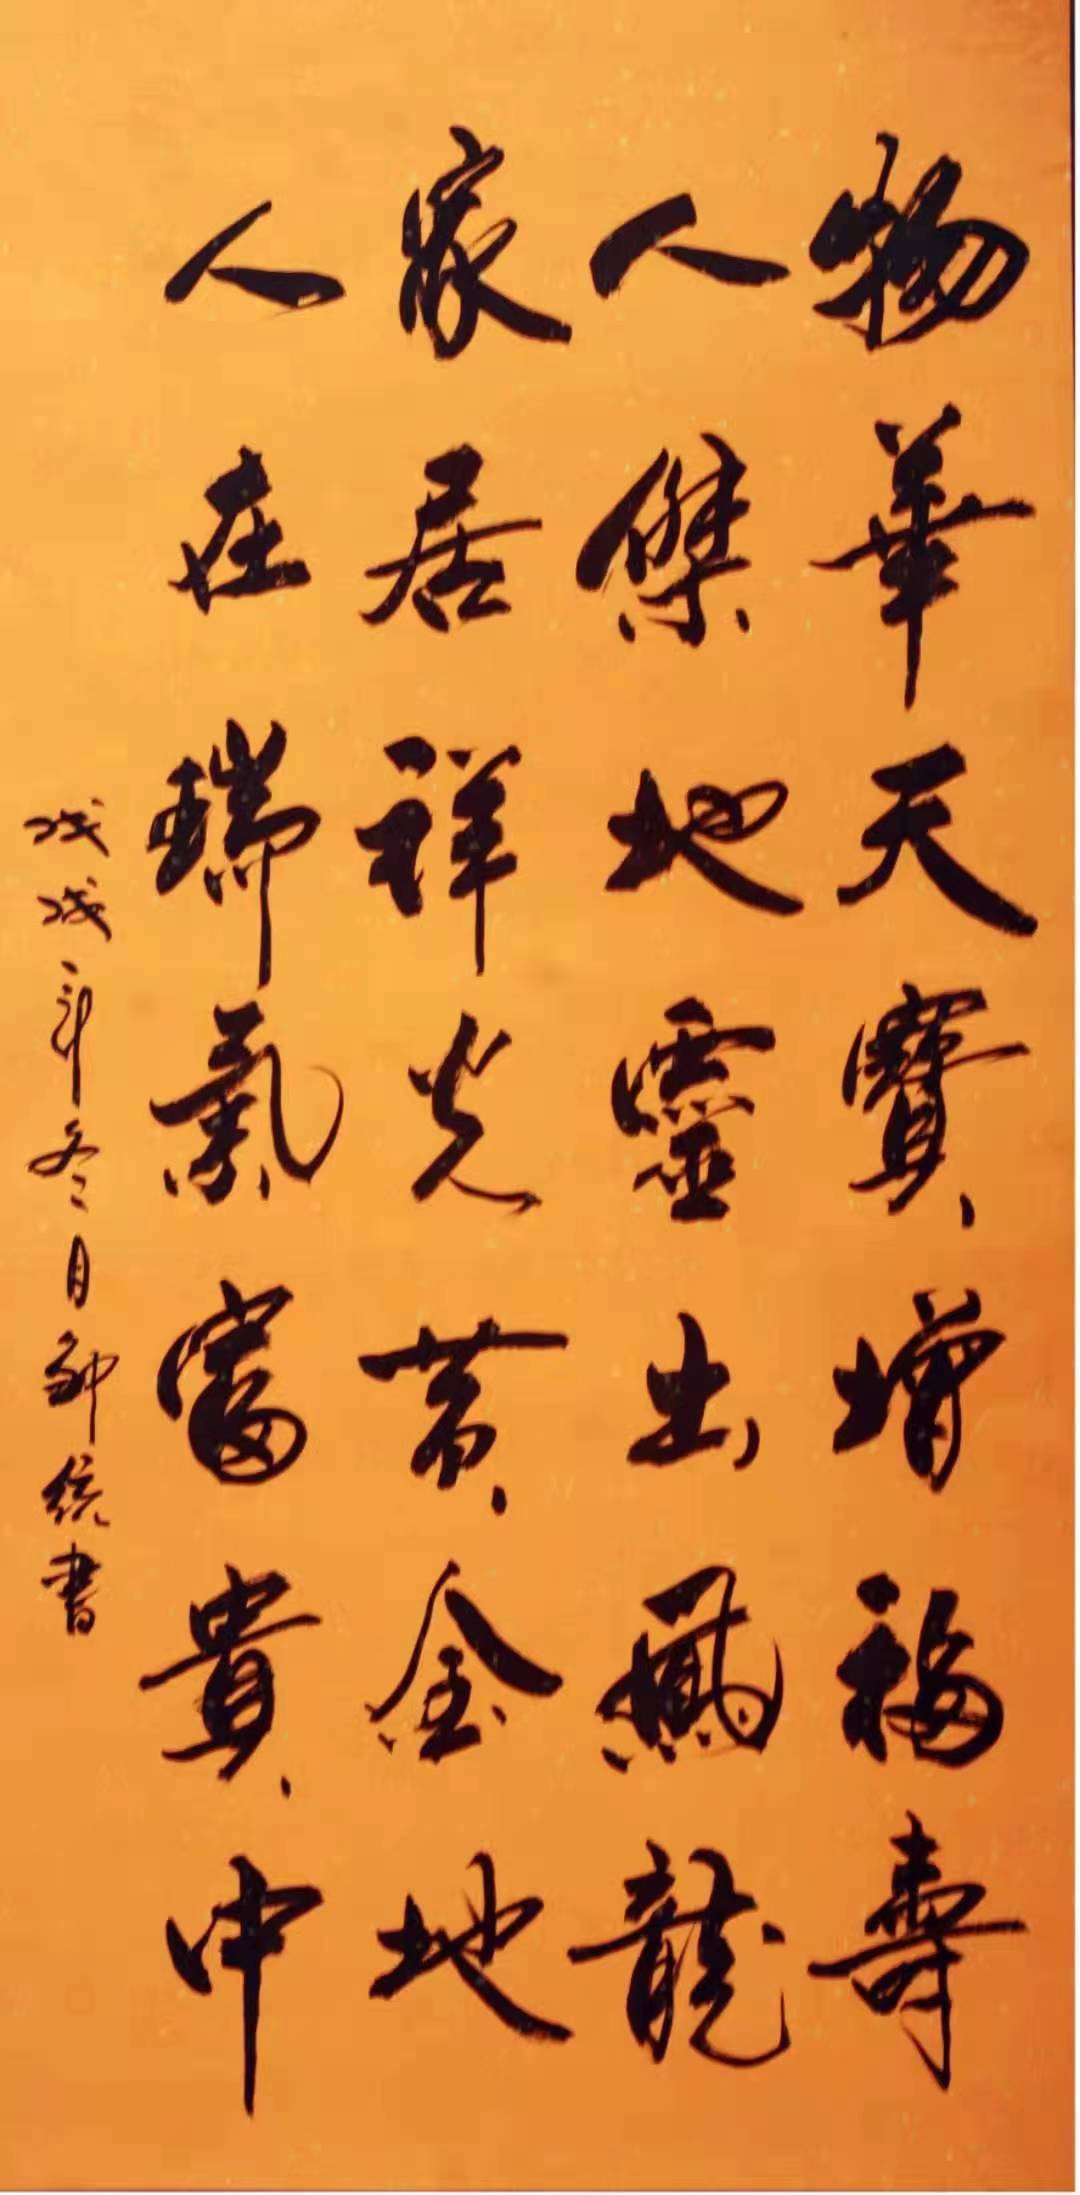 物華天寶增福壽
人傑地靈出鳳龍
家居祥光黄金地
人在瑞氣富貴中
戊戌年冬月 統書